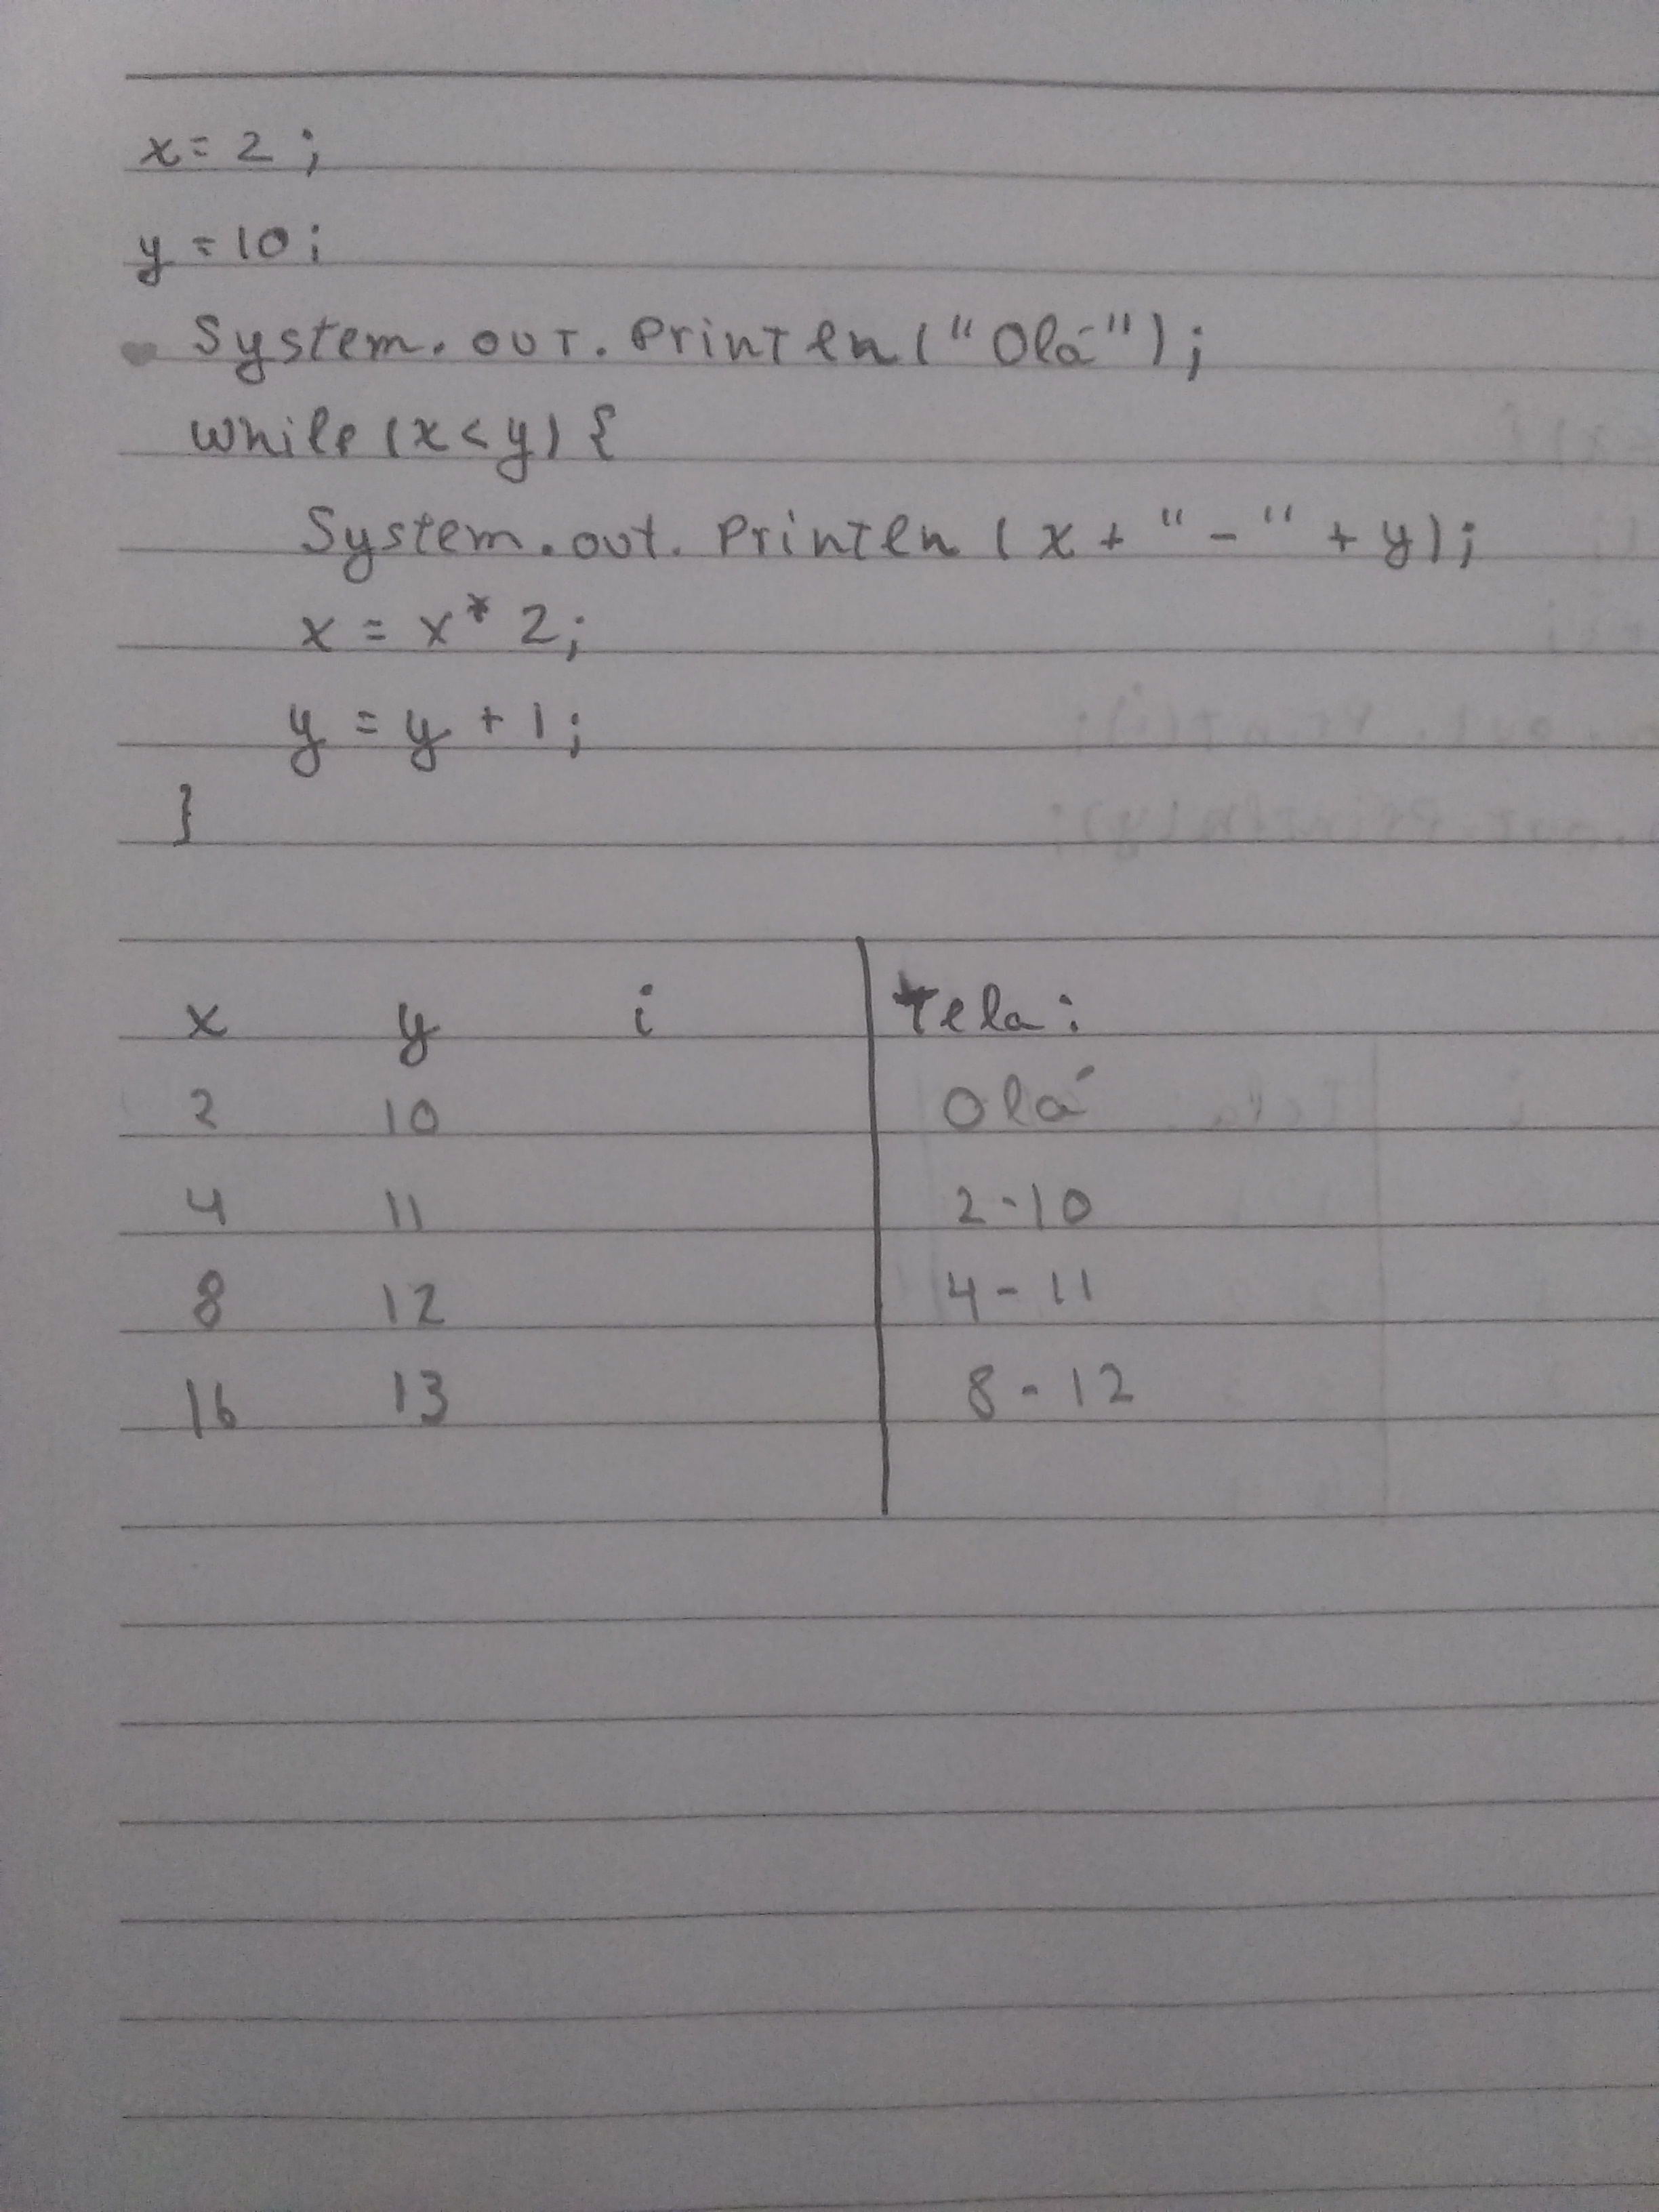 x = 2;
y = 10;
System.out.println("Olá");
while (x < y) {
System.out.println (x + "-" + y);
x = x * 2;
y = y + 1;
}
x y i tela:
2 10 Olá
4 11 2-10
8 12 4-11
16 13 8-12